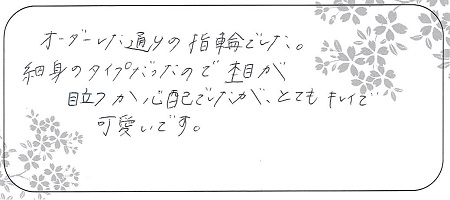 オーダーした通りの指輪でした。
細身のタイプだったので杢目が
目立つか心配でしたが、とてもキレイで
可愛いです。